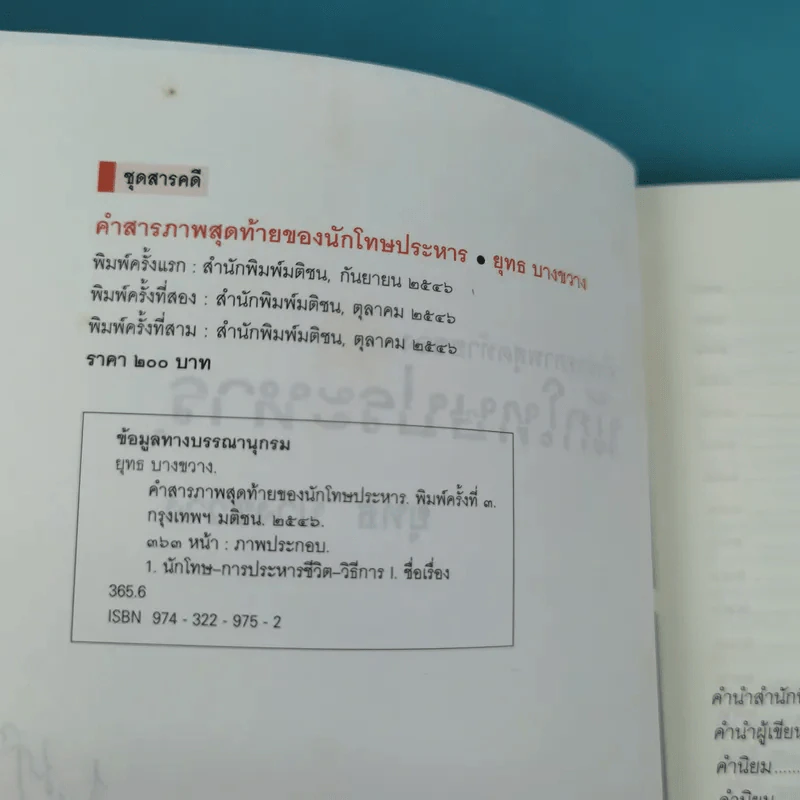 ชุดสารคดี
คำสารภาพสุดท้ายของนักโทษประหาร ● ยุทธ บางขวาง
พิมพ์ครั้งแรก : สำนักพิมพ์มติชน, กันยายน ๒๕๔๖
พิมพ์ครั้งที่สอง : สำนักพิมพ์มติชน, ตุลาคม ๒๕๔๖
พิมพ์ครั้งที่สาม : สำนักพิมพ์มติชน, ตุลาคม ๒๕๔๖
ราคา ๒๐๐ บาท
ข้อมูลทางบรรณานุกรม
ยุทธ บางขวาง.
คำสารภาพสุดท้ายของนักโทษประหาร. พิมพ์ครั้งที่ ๓.
กรุงเทพฯ มติชน. ๒๕๔๖.
๓๖๓ หน้า : ภาพประกอบ.
1. นักโทษ–การประหารชีวิต–วิธีการ I. ชื่อเรื่อง
365.6
ISBN 974 - 322 - 975 - 2
คำนำสำนักพ
คำนำผู้เขียน
คำนิยม.....
คำนิยม